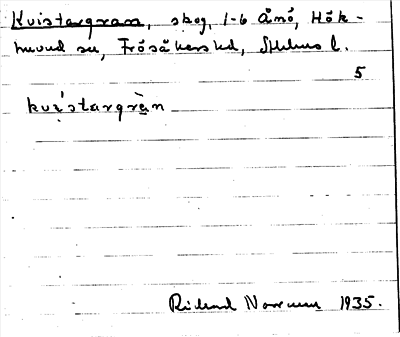 Kvistargran, skog, 1-6 Ånö, Hök-
huvud sn, Frösåkers hd, Sthlms l.
5
kvi̇́stargràn
Rickard Norrman 1935.